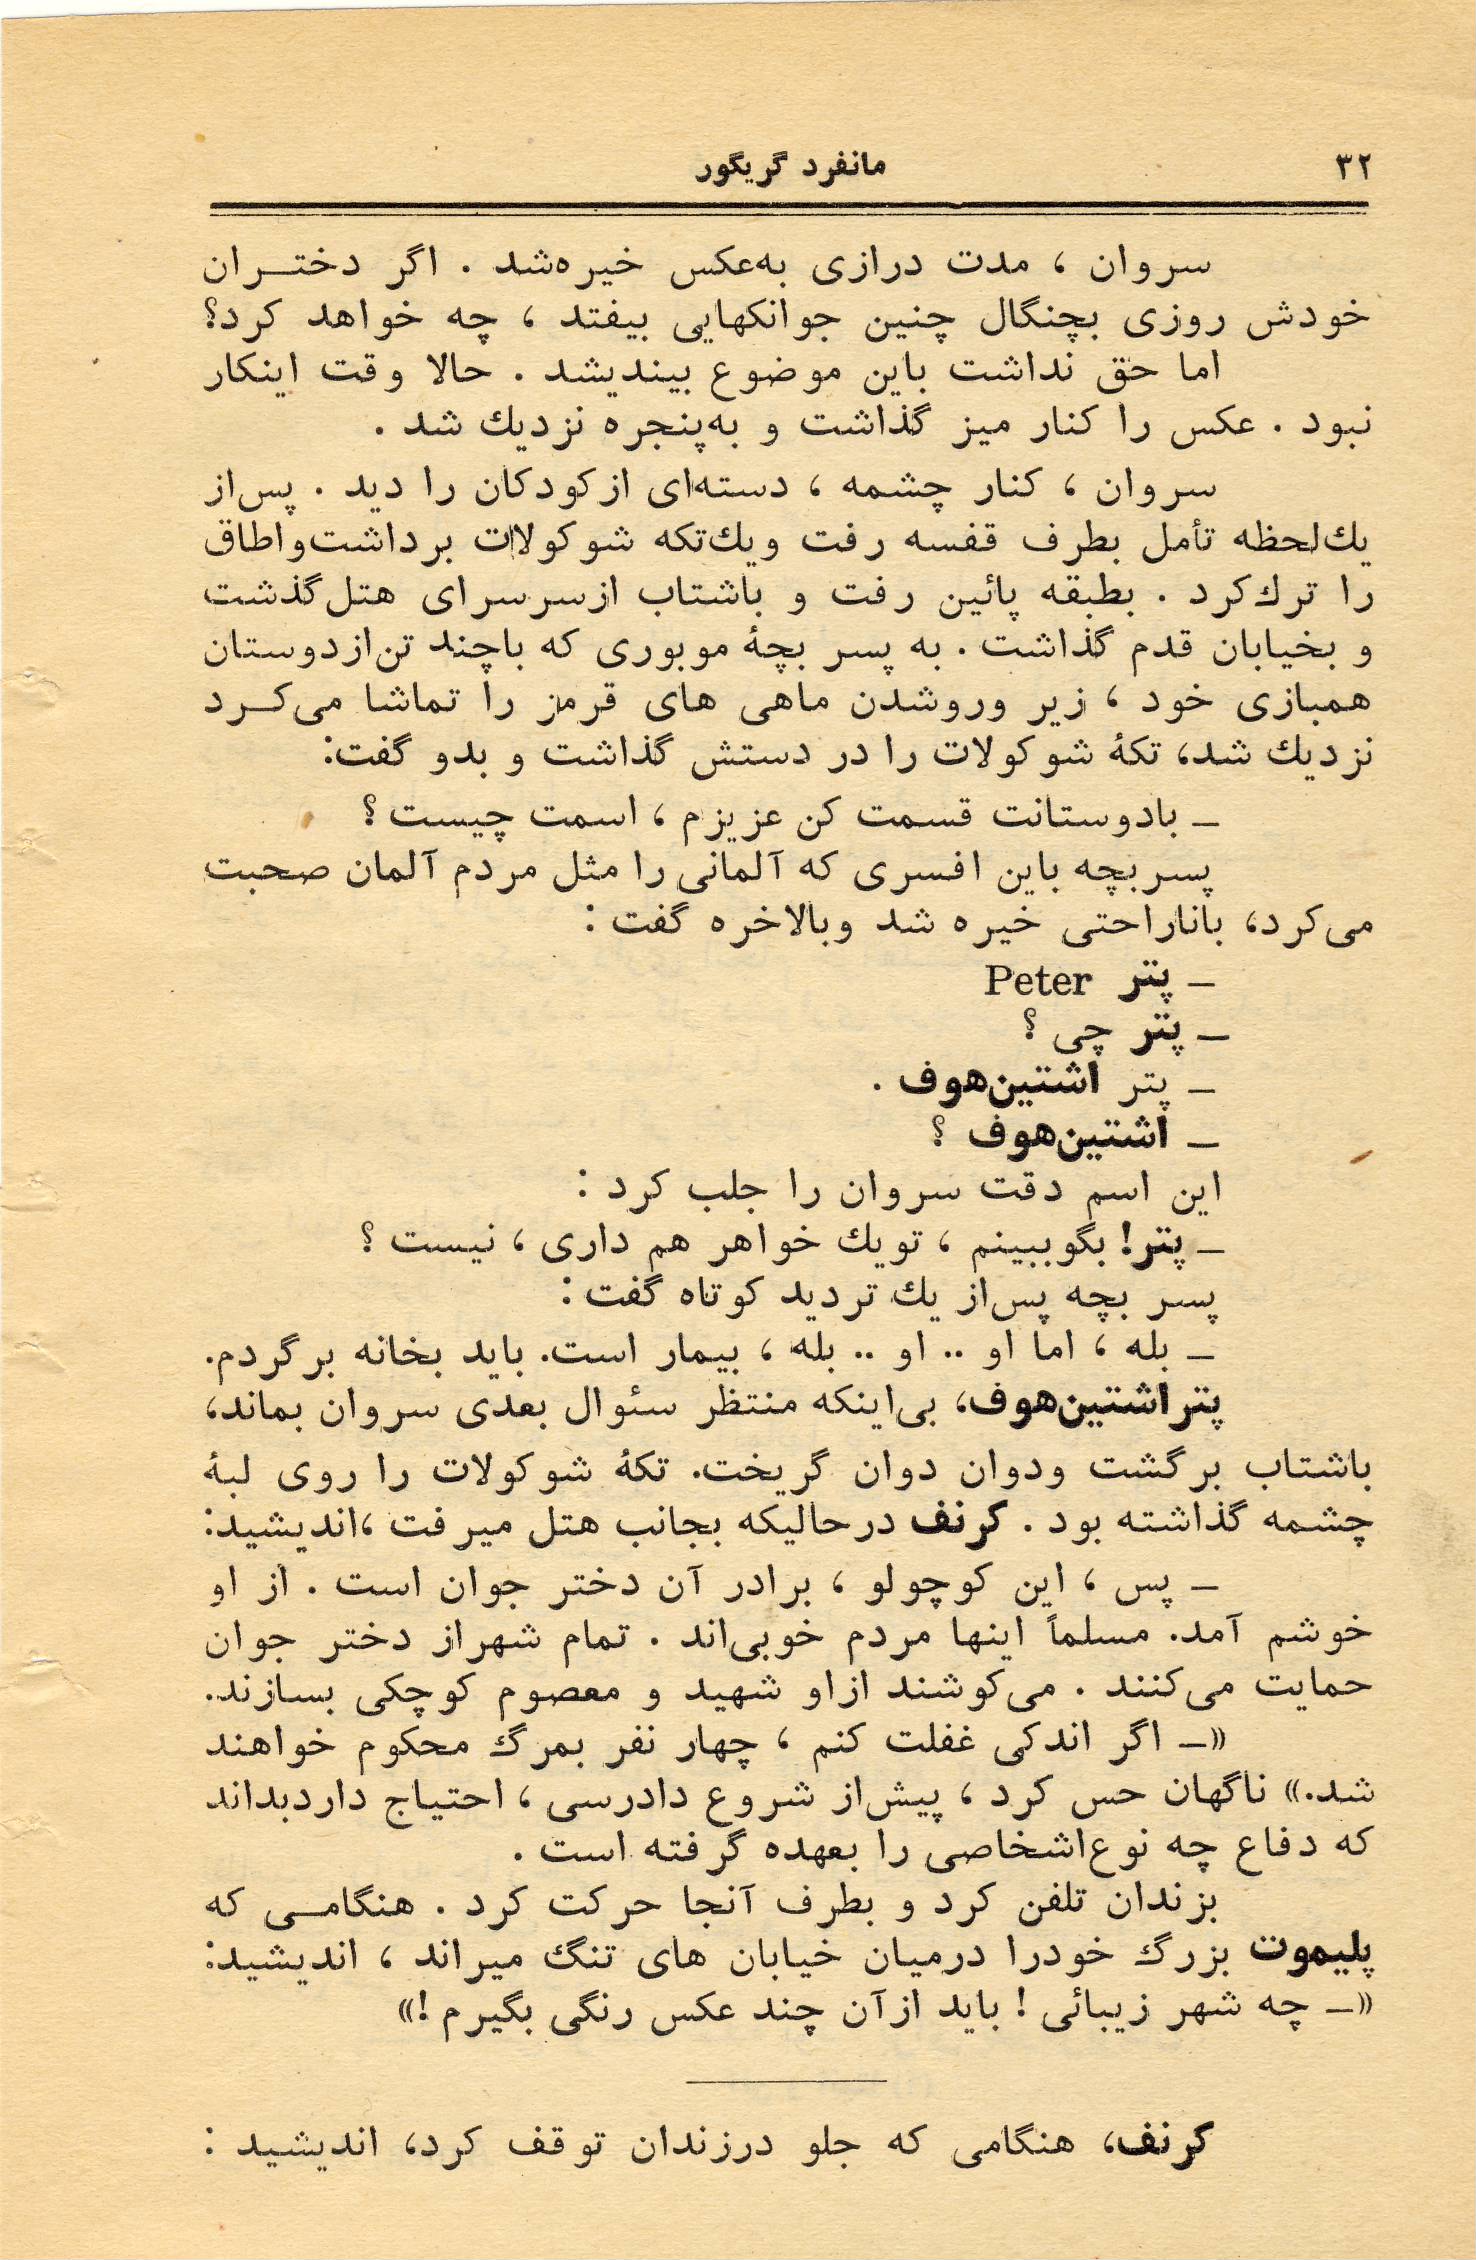 ۳۲
مانفرد گریگور
سروان ، مدت درازی به‌عکس خیره‌شد . اگر دختـــران
خودش روزی بچنگال چنین جوانکهایی بیفتد ، چه خواهد کرد؟
اما حق نداشت باین موضوع بیندیشد . حالا وقت اینکار
نبود . عکس را کنار میز گذاشت و به‌پنجره نزدیك شد .
سروان ، کنار چشمه ، دسته‌ای از کودکان را دید . پس‌از
یك‌لحظه تأمل بطرف قفسه رفت و یك‌تکه شوکولات برداشت و اطاق
را ترك‌کرد . بطبقه پائین رفت و باشتاب از سرسرای هتل گذشت
و بخیابان قدم گذاشت . به پسر بچهٔ موبوری که باچند تن‌از دوستان
همبازی خود ، زیر وروشدن ماهی های قرمز را تماشا می‌کـــرد
نزدیك شد، تکهٔ شوکولات را در دستش گذاشت و بدو گفت:
ــ بادوستانت قسمت کن عزیزم ، اسمت چیست ؟
پسربچه باین افسری که آلمانی را مثل مردم آلمان صحبت
می‌کرد، باناراحتی خیره شد وبالاخره گفت :
ــ پتر Peter
ــ پتر چی ؟
ــ پتر اشتین‌هوف .
ــ اشتین‌هوف ؟
این اسم دقت سروان را جلب کرد :
ــ پتر! بگوببینم ، تویك خواهر هم داری ، نیست ؟
پسر بچه پس‌از یك تردید کوتاه گفت :
ــ بله ، اما او .. او .. بله ، بیمار است. باید بخانه برگردم.
پتراشتین‌هوف، بی‌اینکه منتظر سئوال بعدی سروان بماند،
باشتاب برگشت ودوان دوان گریخت. تکهٔ شوکولات را روی لبهٔ
چشمه گذاشته بود . کرنف درحالیکه بجانب هتل میرفت ،اندیشید:
ــ پس ، این کوچولو ، برادر آن دختر جوان است . از او
خوشم آمد. مسلماً اینها مردم خوبی‌اند . تمام شهراز دختر جوان
حمایت می‌کنند . می‌کوشند ازاو شهید و معصوم کوچکی بسازند.
«ــ اگر اندکی غفلت کنم ، چهار نفر بمرگ محکوم خواهند
شد.» ناگهان حس کرد ، پیش‌از شروع دادرسی ، احتیاج داردبداند
که دفاع چه نوع‌اشخاصی را بعهده گرفته است .
بزندان تلفن کرد و بطرف آنجا حرکت کرد . هنگامــی که
پلیموت بزرگ خودرا درمیان خیابان های تنگ میراند ، اندیشید:
«ــ چه شهر زیبائی ! باید ازآن چند عکس رنگی بگیرم !»
کرنف، هنگامی که جلو درزندان توقف کرد، اندیشید :